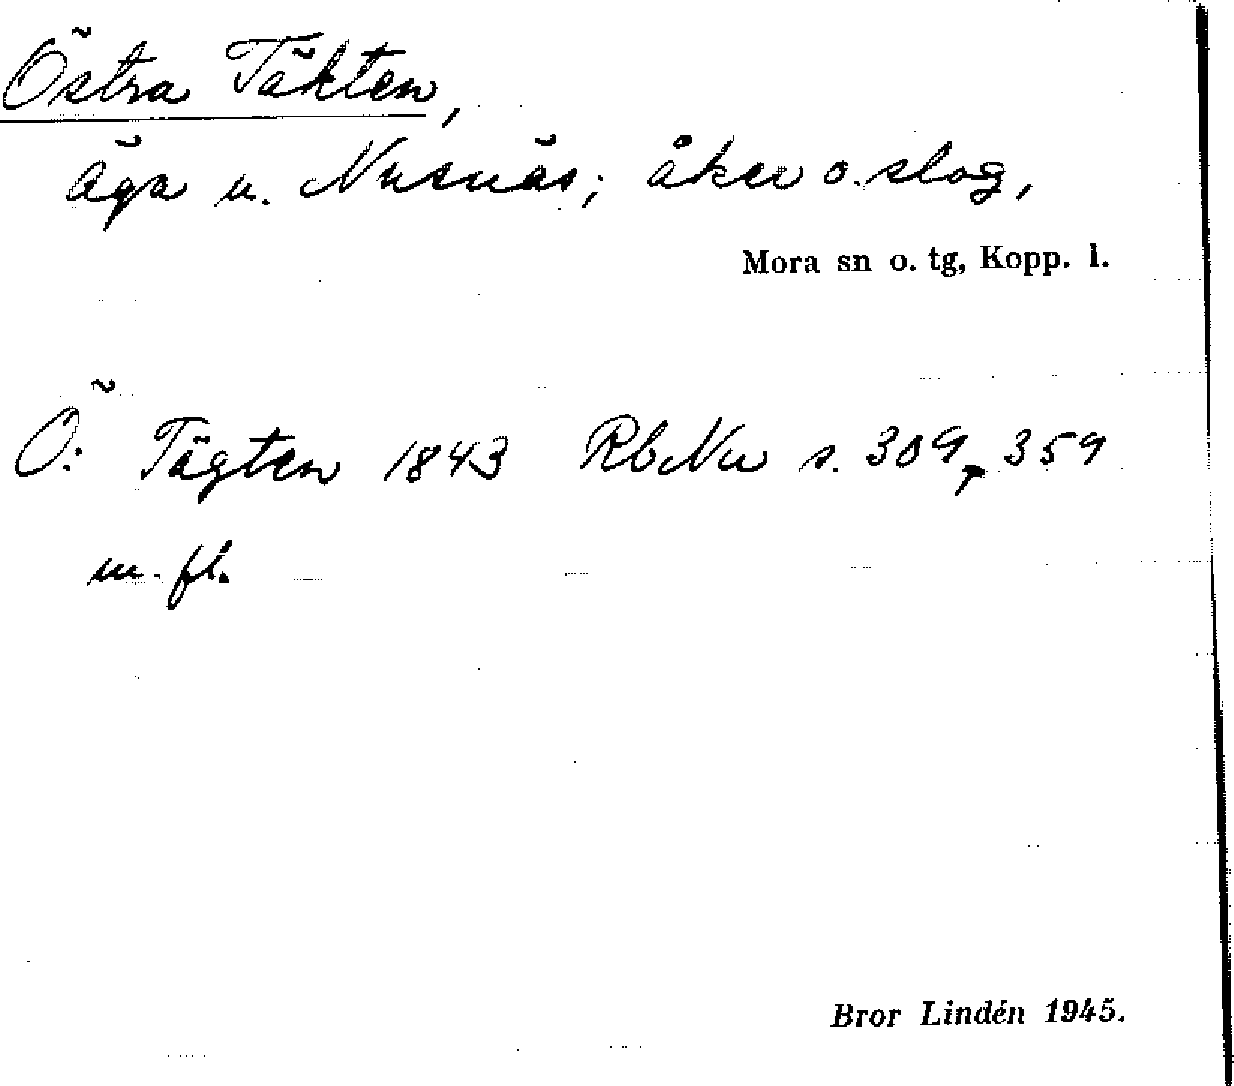 Östra Täkten,
äga u. Nusnäs; åker o. slog,
Mora sn o. tg, Kopp. l.
Ö: Tägten 1843 RbNu s. 309, 359
m. fl.
Bror Lindén 1945.